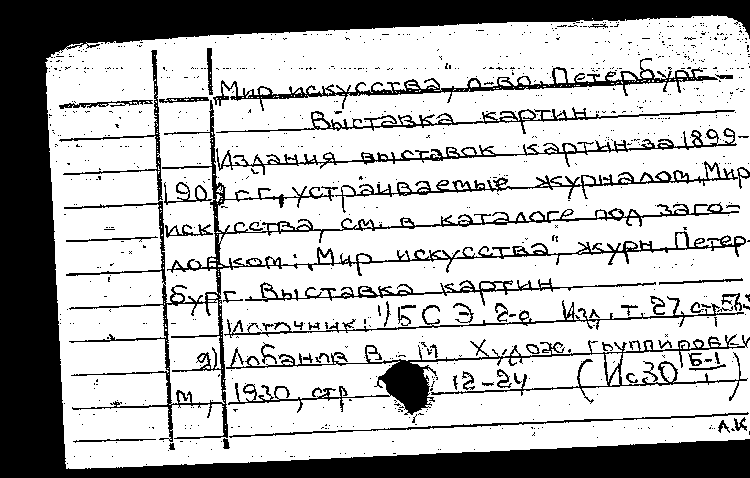 „Мир искусства", о-во. Петербург
Выставка картин.
Издания выставок картин за 1899-
1903 г.г., устраиваемые журналом „Мир
искусства, см. в каталоге под заго-
ловком: „Мир искусства", журн. Петер-
бург. Выставка картин.
Источник: 1) БСЭ. 2-е Изд. т. 27, стр. 563
2) Лобанов В. М. Худож. группировки
М., 1930, стр. 12-24 (Ис30 Б-1/1)
А.К.